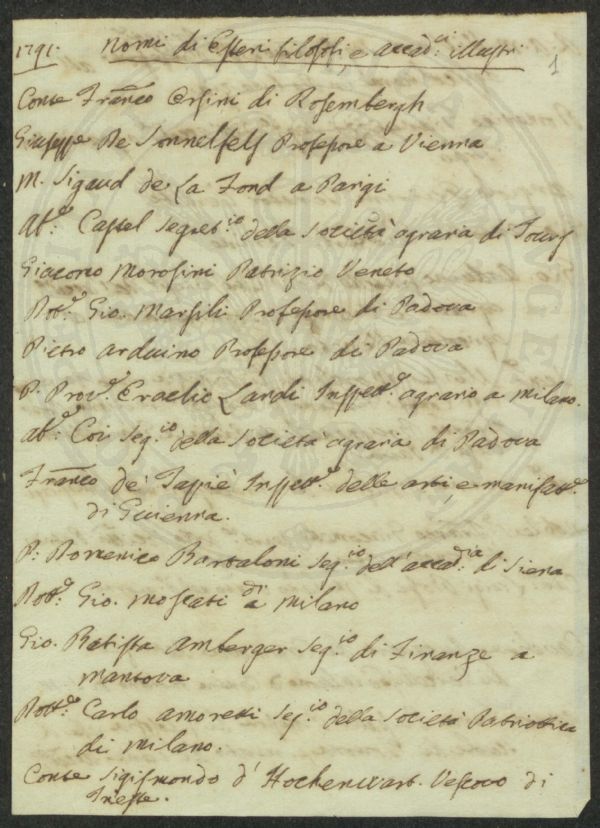 1791. Nomi di Esteri filosofi, e accad:ci illustri
1
Conte Franco Orsini di Rosembergh
Giuseppe De Sonnelfels Professore a Vienna
M. Sigaud de La Fond a Parigi
Ab:e Castel Segret:io della Società agraria di Tours
Giacomo Morosini Patrizio Veneto
Dot:e Gio. Marsili Professore di Padova
Pietro Arduino Professore di Padova
P. Prov:e Eraclio Landi Inspett:e agrario a Milano.
Ab:e Coi Seg:io della Società agraria di Padova
Franco de' Tapiè Inspett:e delle arti, e manifatt:e
di Guienna.
P: Domenico Bartaloni Seg:io dell'accad:ia di Siena
Dott:e Gio. Moscati di a Milano
Gio. Batista Amberger Seg:io di Firenze a
Mantova
Dott:e Carlo Amoretti Seg:io della Società Patriottica
di Milano.
Conte Sigismondo d'Hochenwart. Vescovo di
Trieste.